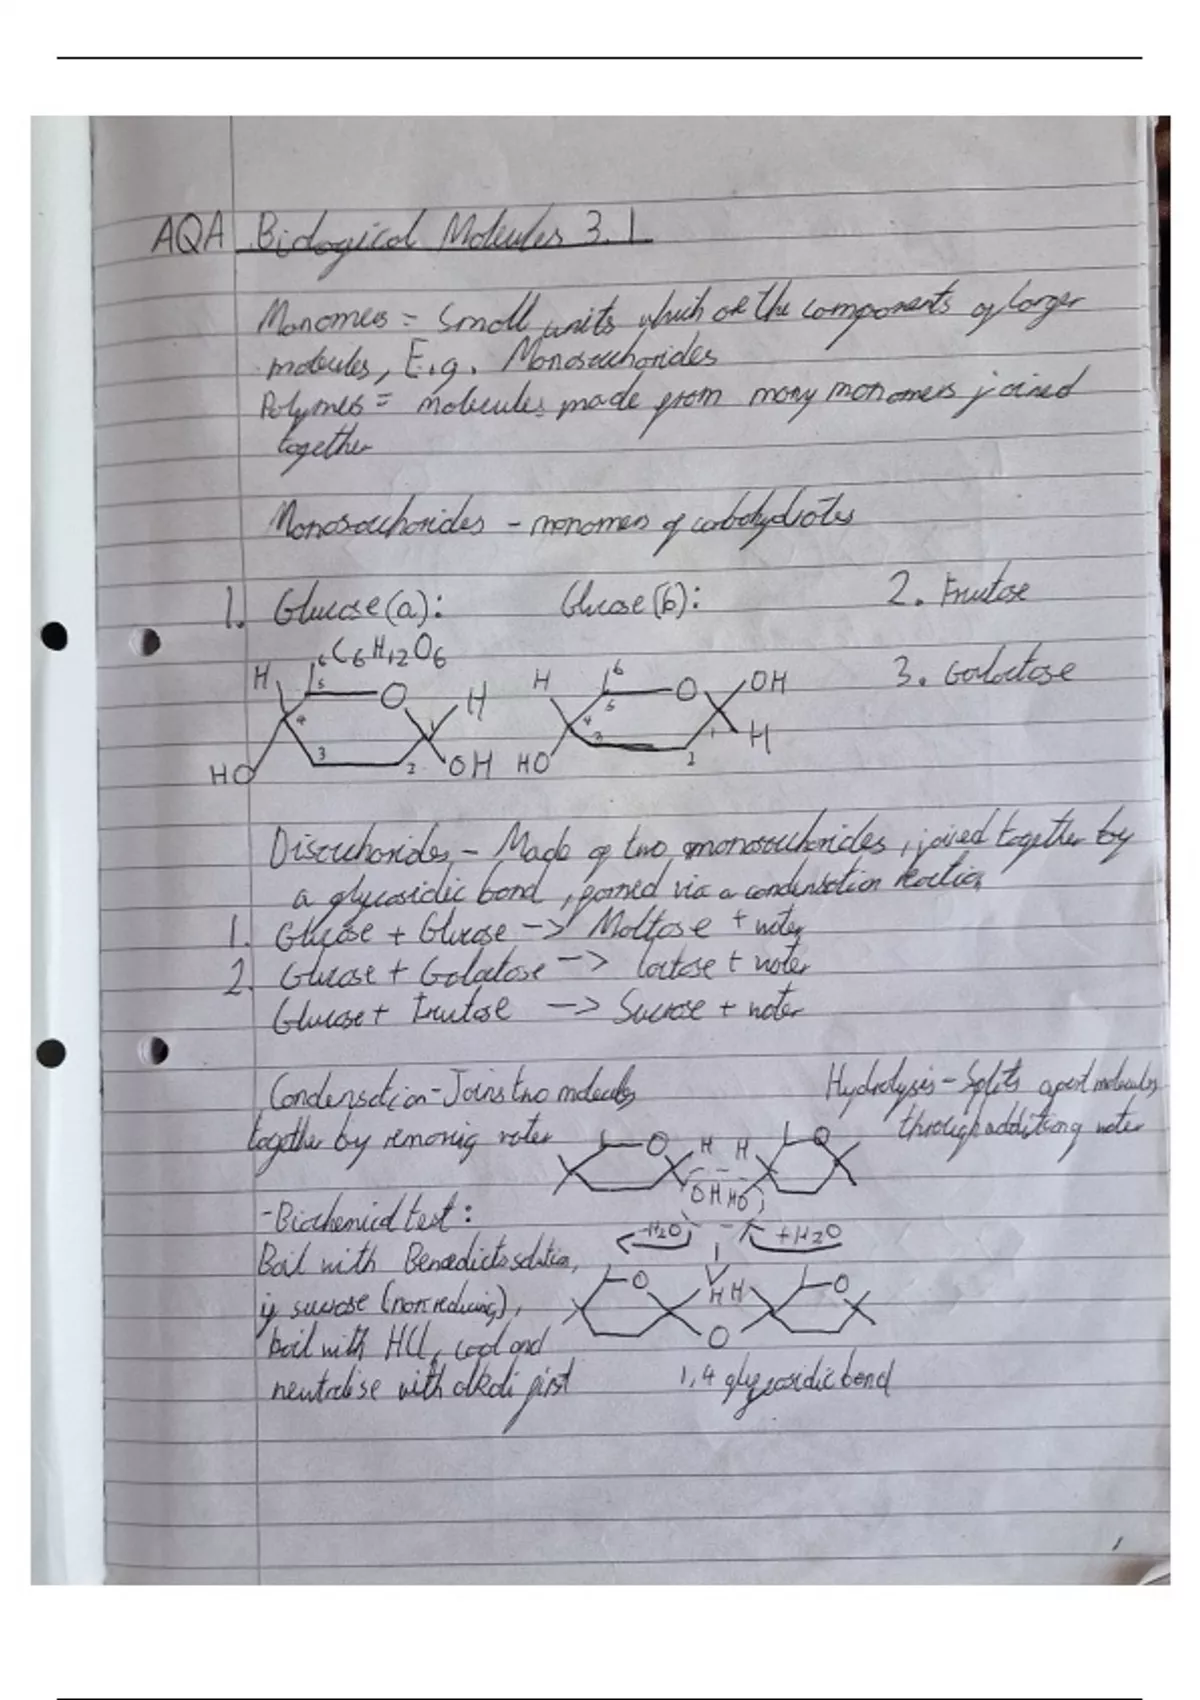 AQA Biological Molecules 3.1
Monomers = Small units which are the components of larger
molecules, E.g. Monosaccharides
Polymers = molecules made from many monomers joined
together
Monosaccharides - monomers of carbohydrates
1. Glucose (a): Glucose (b): 2. Fructose
C6H12O6
3. Galactose
H 6 5 O H 4 1 3 2 HO OH
H 6 5 O OH 4 3 1 H 2 HO
Disaccharides - Made of two monosaccharides, joined together by
a glycosidic bond, formed via a condensation reaction
1. Glucose + Glucose -> Maltose + water
2. Glucose + Galactose -> lactose + water
Glucose + Fructose -> Sucrose + water
Condensation - Joins two molecules
together by removing water
Hydrolysis - Splits apart molecules
through addition of water
O H H O
OH HO
-H2O +H2O
O H H O
O
1,4 glycosidic bond
- Biochemical test:
Boil with Benedicts solution,
if sucrose (non reducing),
boil with HCl, cool and
neutralise with alkali first
1